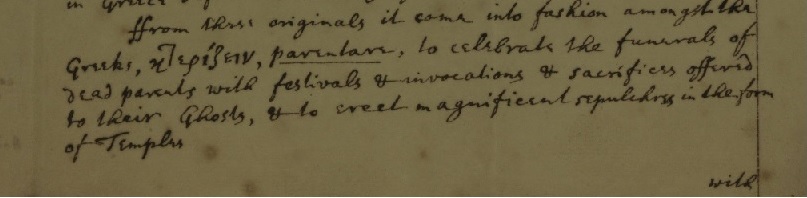 in Greece
ffrom these originals it came into fashion amongst the
Greeks, κτερίζειν, parentare, to celebrate the funerals of
dead parents with festivals & invocations & sacrifices offered
to their Ghosts, & to erect magnificent sepulchres in the form
of Temples
with